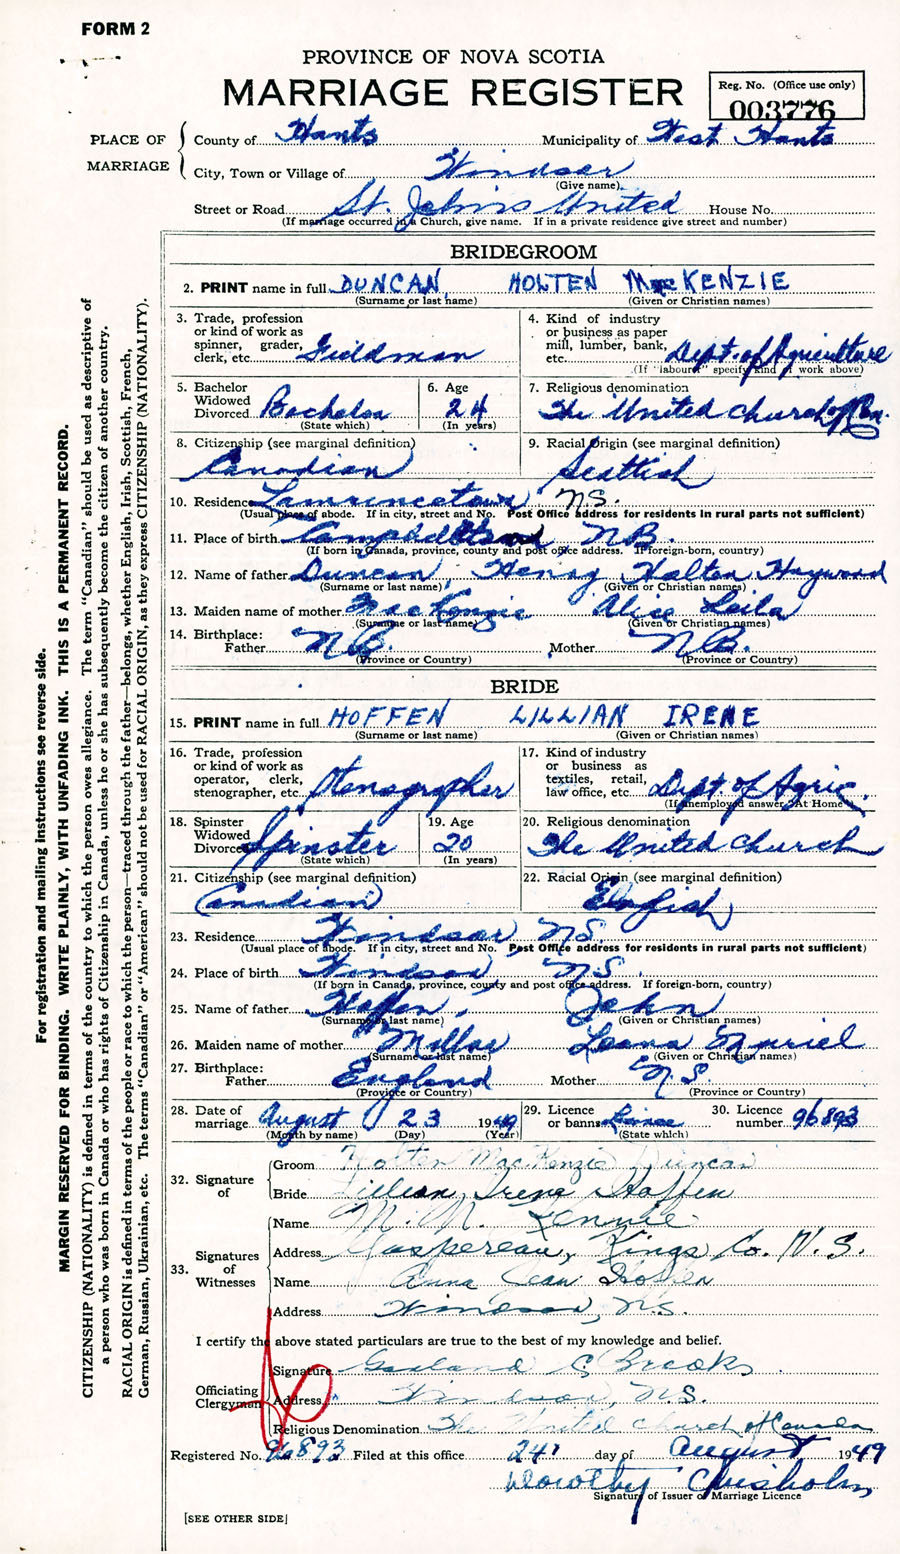 FORM 2
PROVINCE OF NOVA SCOTIA
MARRIAGE REGISTER
Reg. No. (Office use only)
003776
PLACE OF MARRIAGE
County of Hants Municipality of West Hants
City, Town or Village of Windsor
(Give name)
Street or Road St. John's United House No.
(If marriage occurred in a Church, give name. If in a private residence give street and number)
BRIDEGROOM
2. PRINT name in full DUNCAN HOLTEN MacKENZIE
(Surname or last name) (Given or Christian names)
3. Trade, profession or kind of work as spinner, grader, clerk, etc. Fieldman
4. Kind of industry or business as paper mill, lumber, bank, etc. Dept. of Agriculture
(If "labourer" specify kind of work above)
5. Bachelor Widowed Divorced Bachelor
(State which)
6. Age 24
(In years)
7. Religious denomination
The United Church of Can.
8. Citizenship (see marginal definition)
Canadian
9. Racial Origin (see marginal definition)
Scottish
10. Residence Lawrencetown N.S.
(Usual place of abode. If in city, street and No. Post Office address for residents in rural parts not sufficient)
11. Place of birth N.B.
(If born in Canada, province, county and post office address. If foreign-born, country)
12. Name of father Duncan, Henry Halten Haywood
(Surname or last name) (Given or Christian names)
13. Maiden name of mother MacKenzie Alice Leila
(Surname or last name) (Given or Christian names)
14. Birthplace:
Father N.B. Mother N.B.
(Province or Country) (Province or Country)
BRIDE
15. PRINT name in full HOFFEN LILLIAN IRENE
(Surname or last name) (Given or Christian names)
16. Trade, profession or kind of work as operator, clerk, stenographer, etc. Stenographer
17. Kind of industry or business as textiles, retail, law office, etc. Dept. of Agric.
(If unemployed answer "At Home")
18. Spinster Widowed Divorced Spinster
(State which)
19. Age 20
(In years)
20. Religious denomination
The United Church
21. Citizenship (see marginal definition)
Canadian
22. Racial Origin (see marginal definition)
English
23. Residence Windsor N.S.
(Usual place of abode. If in city, street and No. Post Office address for residents in rural parts not sufficient)
24. Place of birth Windsor N.S.
(If born in Canada, province, county and post office address. If foreign-born, country)
25. Name of father Hoffen, John
(Surname or last name) (Given or Christian names)
26. Maiden name of mother Muriel
(Surname or last name) (Given or Christian names)
27. Birthplace:
Father England Mother N.S.
(Province or Country) (Province or Country)
28. Date of marriage August 23 1949
(Month by name) (Day) (Year)
29. Licence or banns License
(State which)
30. Licence number 96893
32. Signature of
Groom Holten MacKenzie Duncan
Bride Lillian Irene Hoffen
33. Signatures of Witnesses
Name M. M. Rennie
Address Gaspereau, Kings Co. N.S.
Name Anna Jean Hoffen
Address Windsor, N.S.
I certify the above stated particulars are true to the best of my knowledge and belief.
Officiating Clergyman
Signature Garland C. Brooks
Address Windsor, N.S.
Religious Denomination The United Church of Canada
Registered No. 96893 Filed at this office 24 day of August 1949
Dorothy Chisholm
Signature of Issuer of Marriage Licence
[SEE OTHER SIDE]
For registration and mailing instructions see reverse side.
MARGIN RESERVED FOR BINDING. WRITE PLAINLY, WITH UNFADING INK. THIS IS A PERMANENT RECORD.
CITIZENSHIP (NATIONALITY) is defined in terms of the country to which the person owes allegiance. The term "Canadian" should be used as descriptive of
a person who was born in Canada or who has rights of Citizenship in Canada, unless he or she has subsequently become the citizen of another country.
RACIAL ORIGIN is defined in terms of the people or race to which the person—traced through the father—belongs, whether English, Irish, Scottish, French,
German, Russian, Ukrainian, etc. The terms "Canadian" or "American" should not be used for RACIAL ORIGIN, as they express CITIZENSHIP (NATIONALITY).